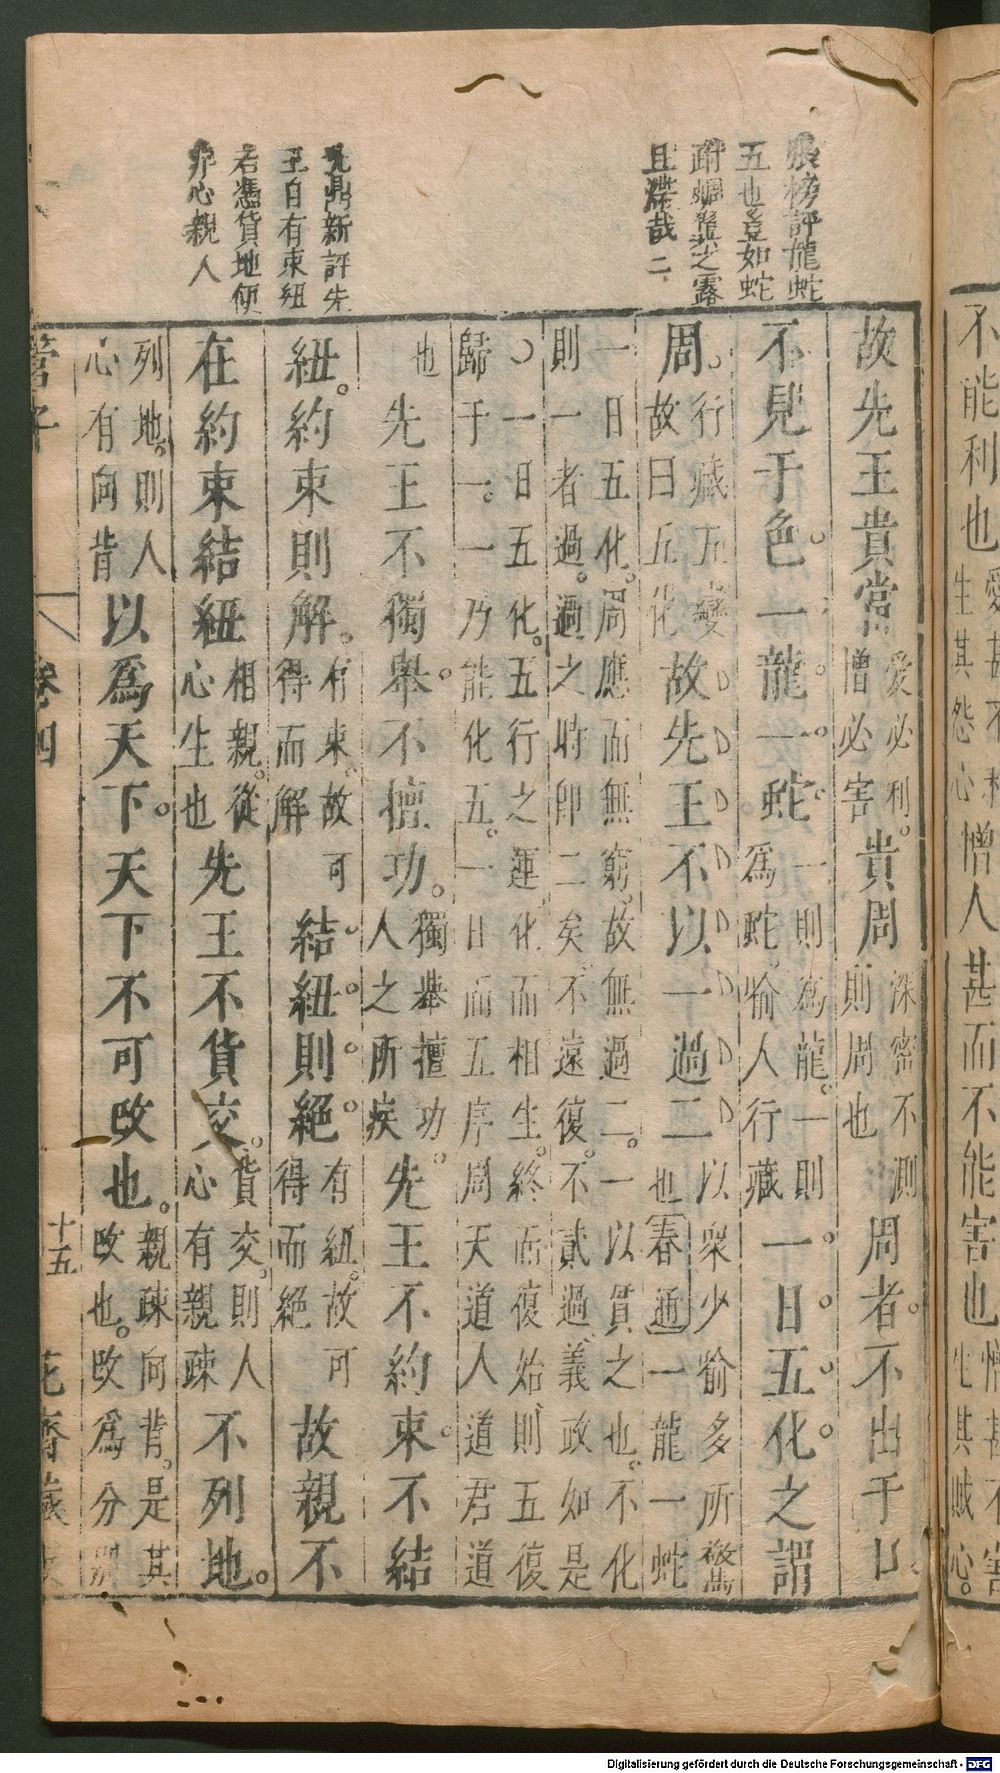 張榜評龍蛇
五也豈如蛇
蚹蜩翼之露
且渫哉二
先王貴當愛必利。憎必害貴周深密不測則周也周者。不出于口。
不見于色。一龍。一蛇。一則爲龍。一則爲蛇喻人行藏一日五化之謂
周。行藏五變故曰五化故先王不以一過二以衆少喻多所驚也春通一龍一蛇
一日五化。周應而無窮。故無過二。一以貫之也。不化
則一者過。過之時卽二矣不遠復。不貳過義政如是
○一日五化。五行之運化而相生。終而復始則五復
歸于一。一乃能化五。一日而五序周天道人道君道
也先王不獨舉。不擅功。獨舉擅功。人之所疾先王不約束。不結
紐。約束則解。有束。故可得而解結紐則絕有紐。故可得而絕故親不
在約束結紐相親。從心生也先王不貨交。貨交。則人心有親疎不列地。
列地。則人心有向背以爲天下。天下不可攺也。親疎向背。是其攺也。攺爲分別
先王自有束紐
若憑貨地便
非心親人
管子
卷四
十五
花齋藏板
不能利也
憎人甚而不能害也
Digitalisierung gefördert durch die Deutsche Forschungsgemeinschaft - DFG